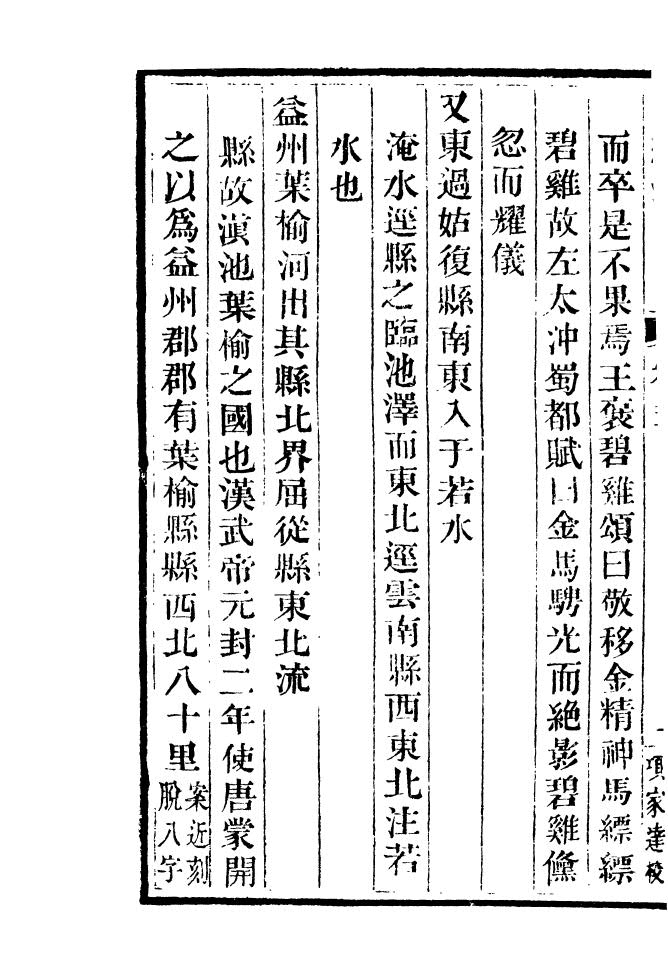 而卒是不果焉王褒碧雞頌曰敬移金精神馬縹縹
碧雞故左太沖蜀都賦曰金馬騁光而絶影碧雞儵
忽而耀儀
又東過姑復縣南東入于若水
淹水逕縣之臨池澤而東北逕雲南縣西東北注若
水也
益州葉榆河出其縣北界屈從縣東北流
縣故滇池葉榆之國也漢武帝元封二年使唐蒙開
之以爲益州郡郡有葉榆縣縣西北八十里案近刻
脫八字
項家達校